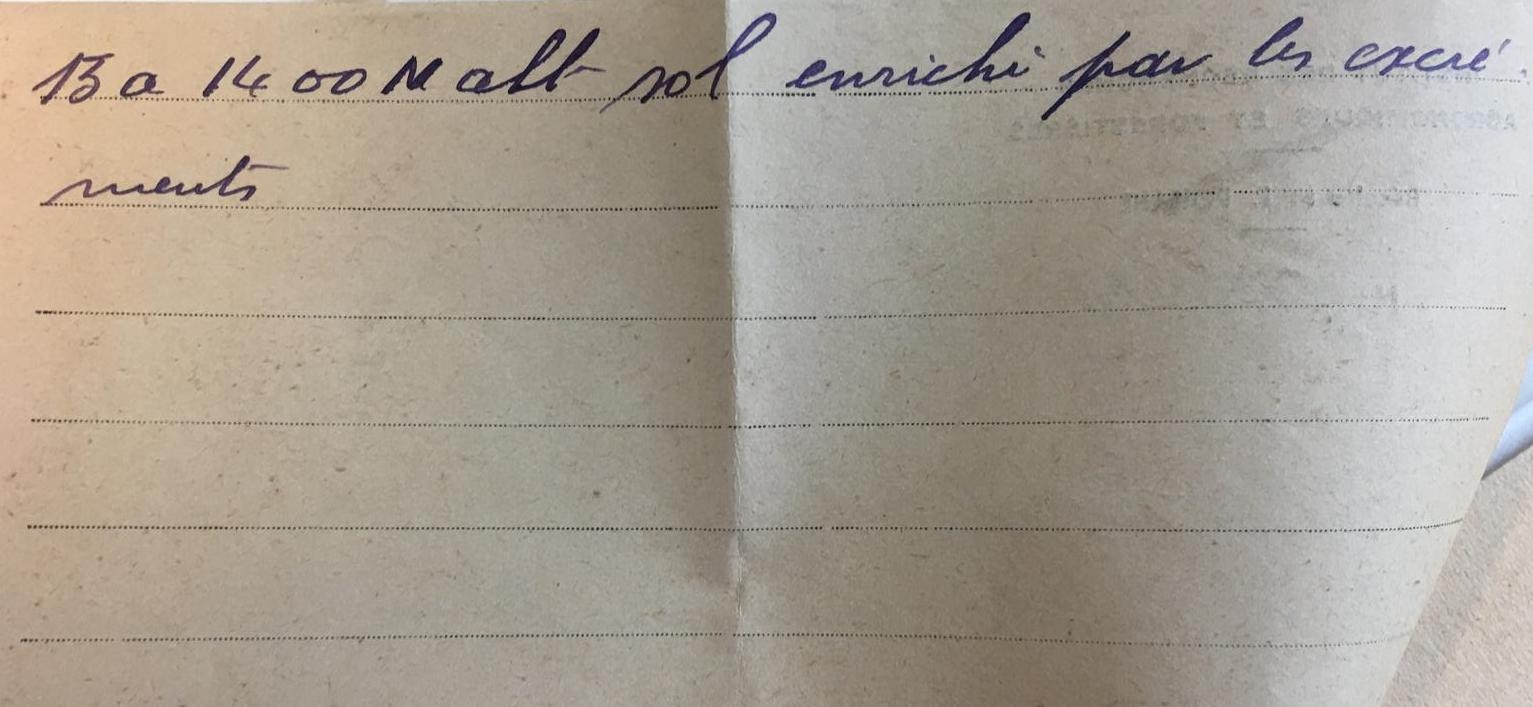 13 a 1400 M alt sol enrichi par les excré
ments